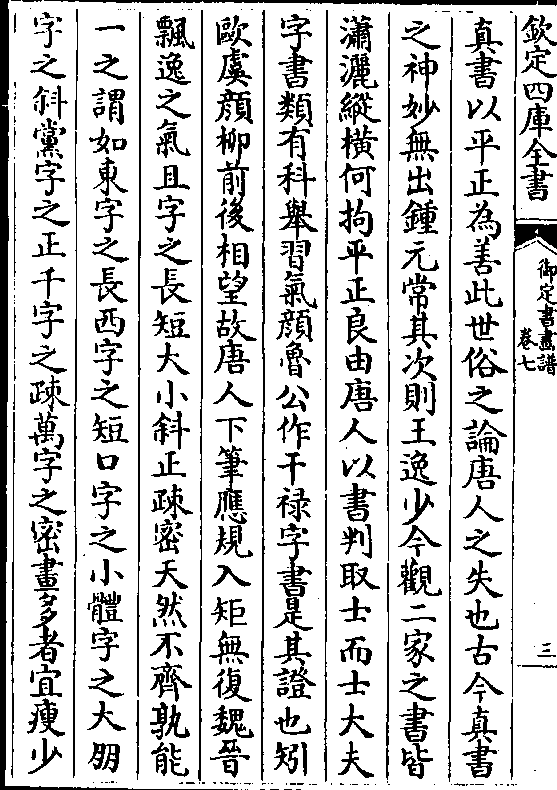 欽定四庫全書
御定書畫譜
卷七
三
真書以平正為善此世俗之論唐人之失也古今真書
之神妙無出鍾元常其次則王逸少今觀二家之書皆
瀟灑縱橫何拘平正良由唐人以書判取士而士大夫
字書類有科舉習氣顔魯公作干禄字書是其證也矧
歐虞顔柳前後相望故唐人下筆應規入矩無復魏晉
飄逸之氣且字之長短大小斜正疎密天然不齊孰能
一之謂如東字之長西字之短口字之小體字之大朋
字之斜黨字之正千字之疎萬字之密畫多者宜瘦少